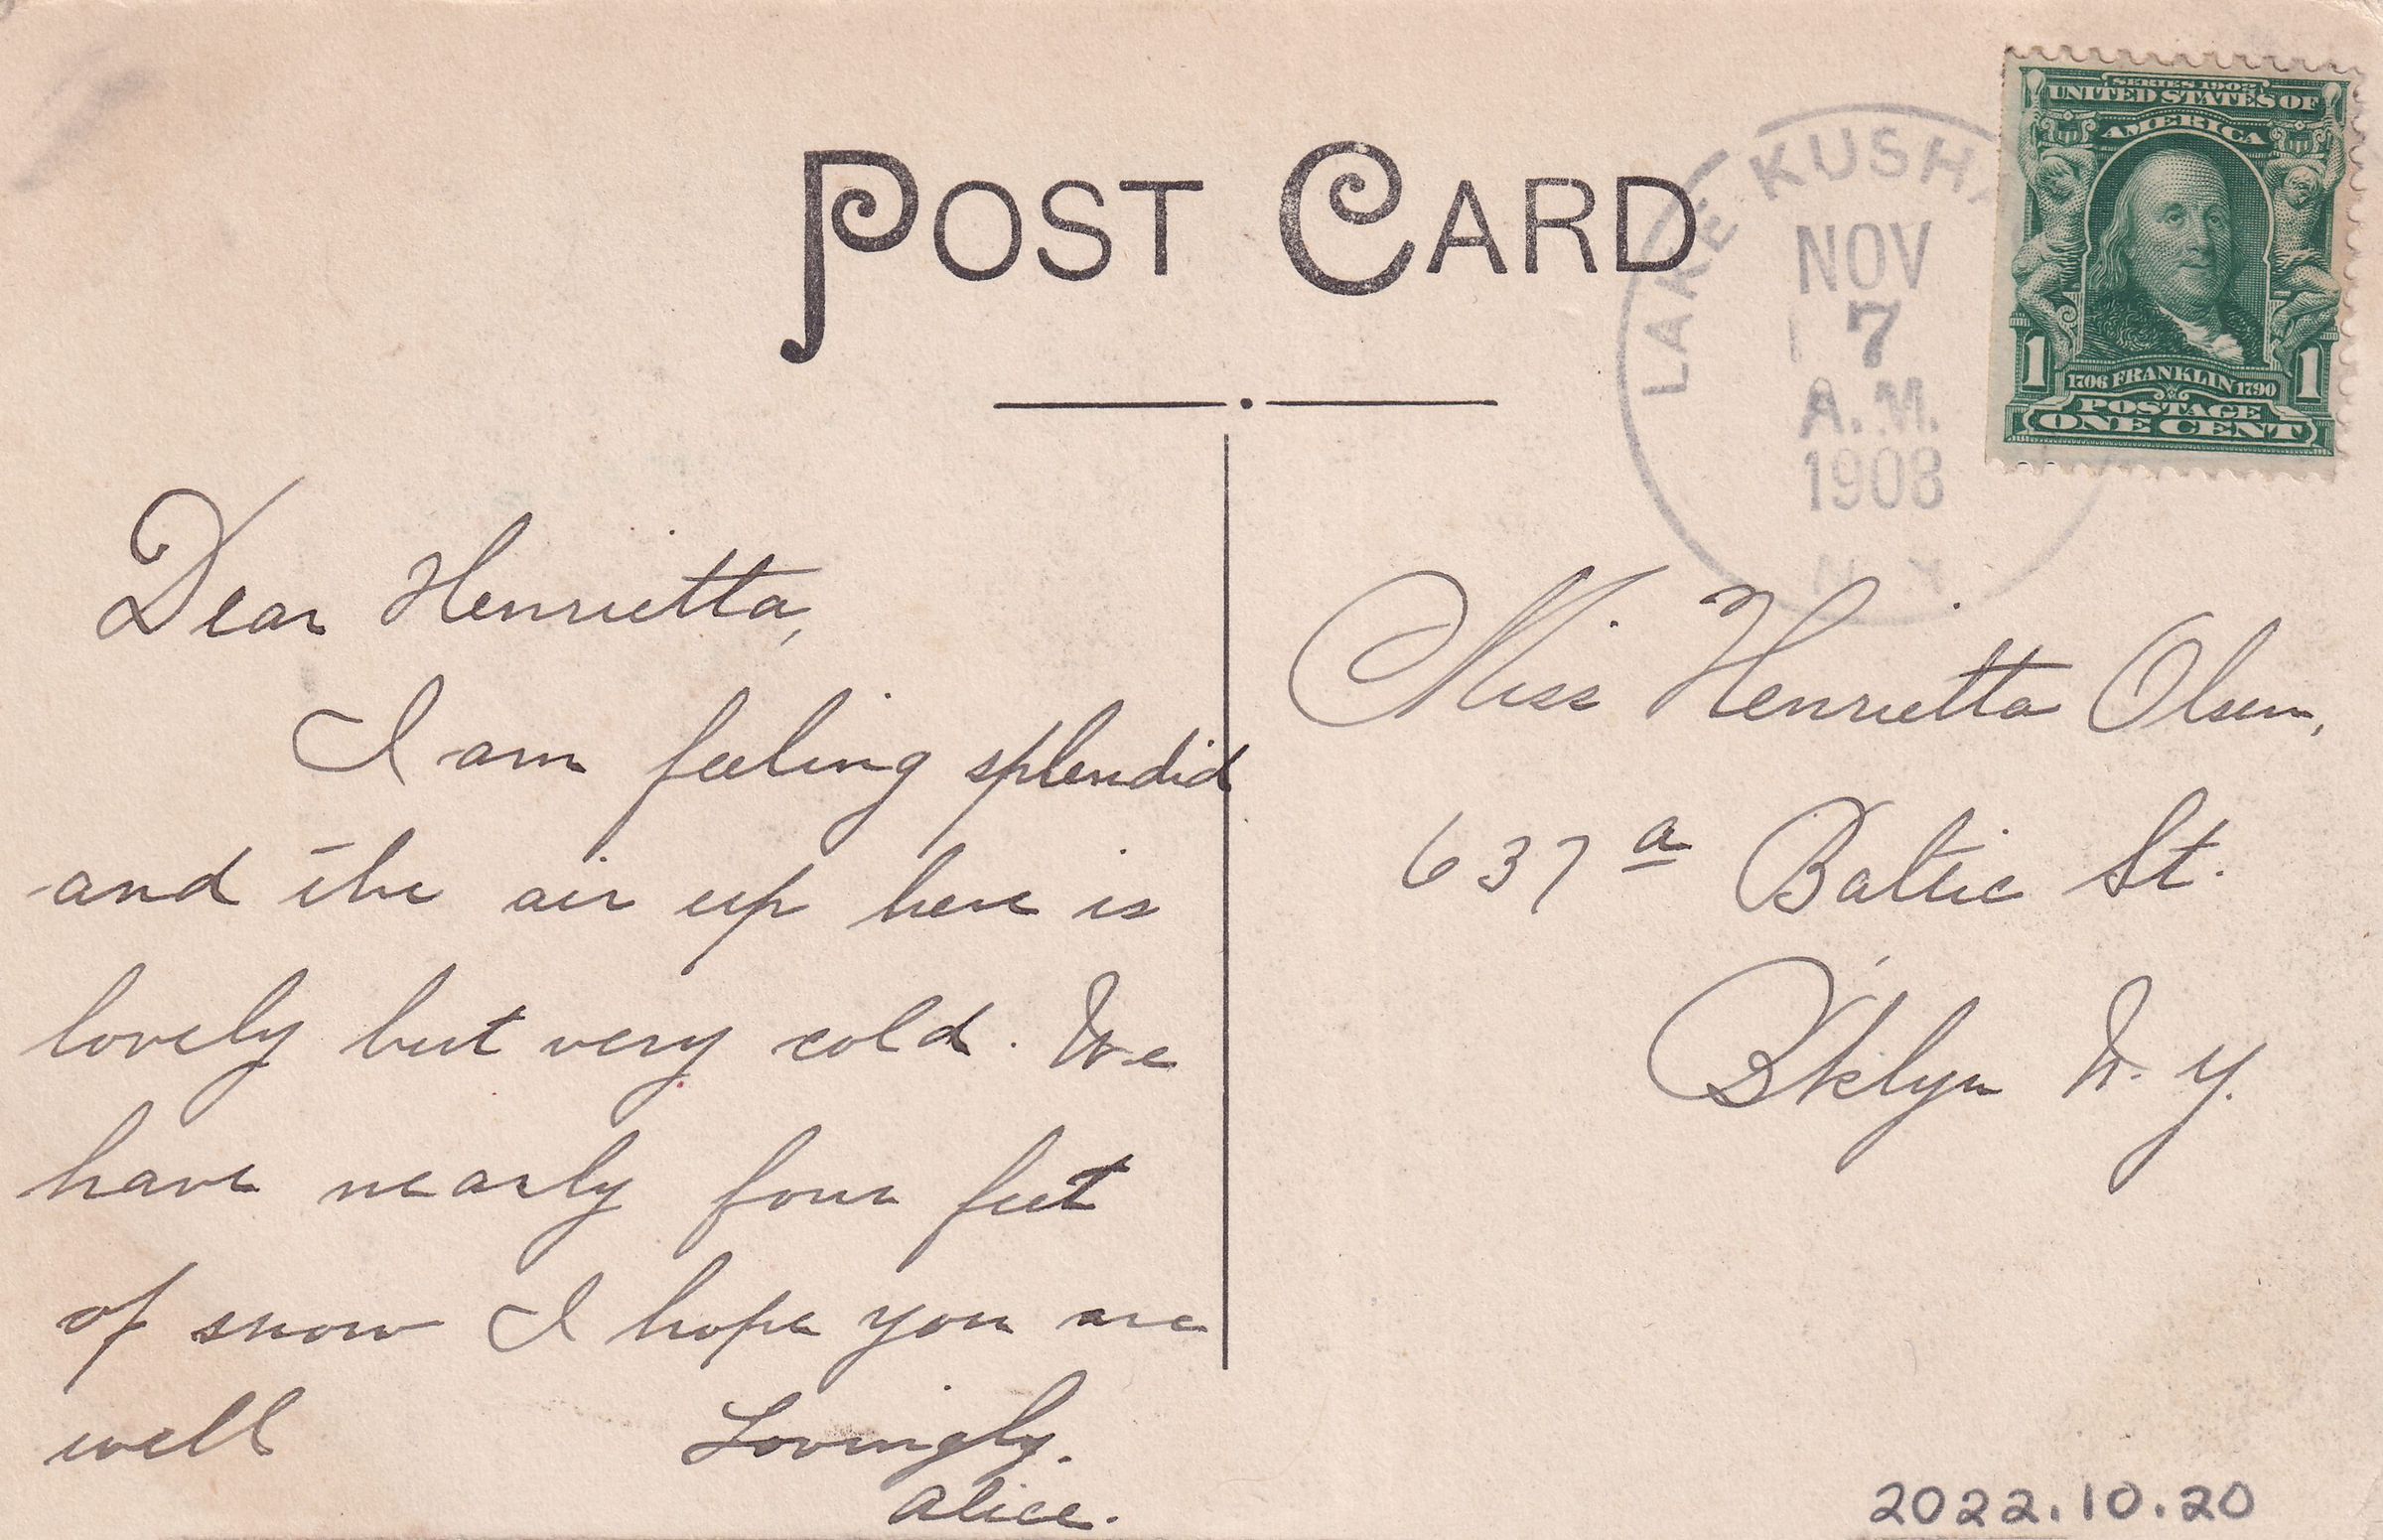 POST CARD
LAKE KUSHA
NOV
7
A.M.
1908
N.Y.
SERIES 1902
UNITED STATES OF
AMERICA
1 1
1706 FRANKLIN 1790
POSTAGE
ONE CENT
Dear Henrietta,
I am feeling splendid
and the air up here is
lovely but very cold. We
have nearly four feet
of snow I hope you are
well Lovingly.
Alice.
Miss Henrietta Olsen,
637 a Baltic St.
B'klyn N. Y.
2022.10.20